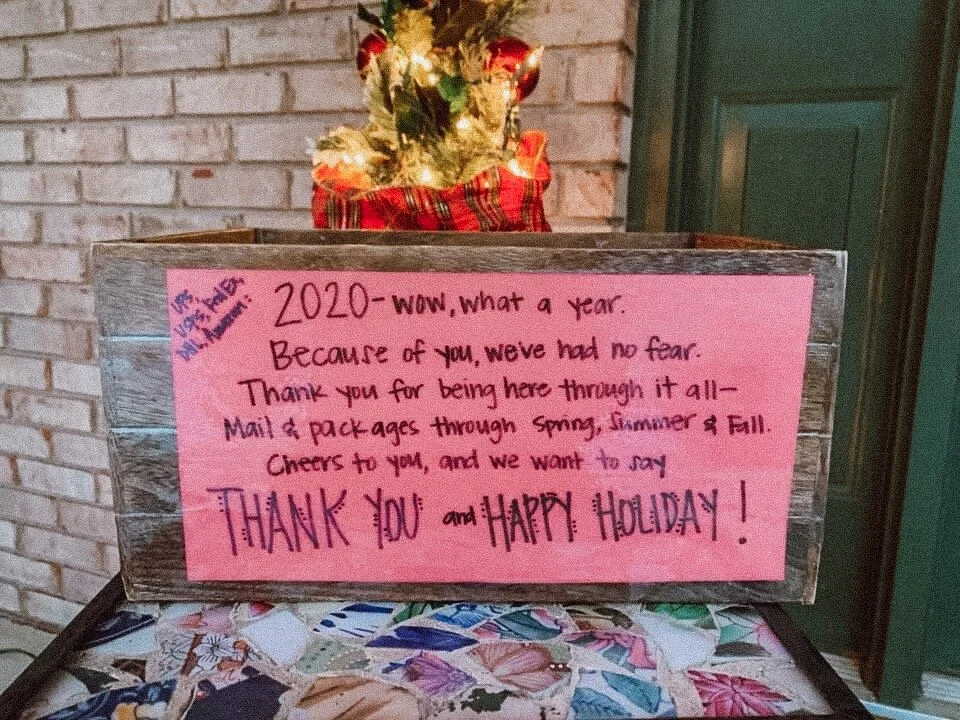 UPS,
USPS, FedEx,
DHL, Amazon:
2020-wow, what a year.
Because of you, we've had no fear.
Thank you for being here through it all—
Mail & packages through Spring, Summer & Fall.
Cheers to you, and we want to say
THANK YOU and HAPPY HOLIDAY!